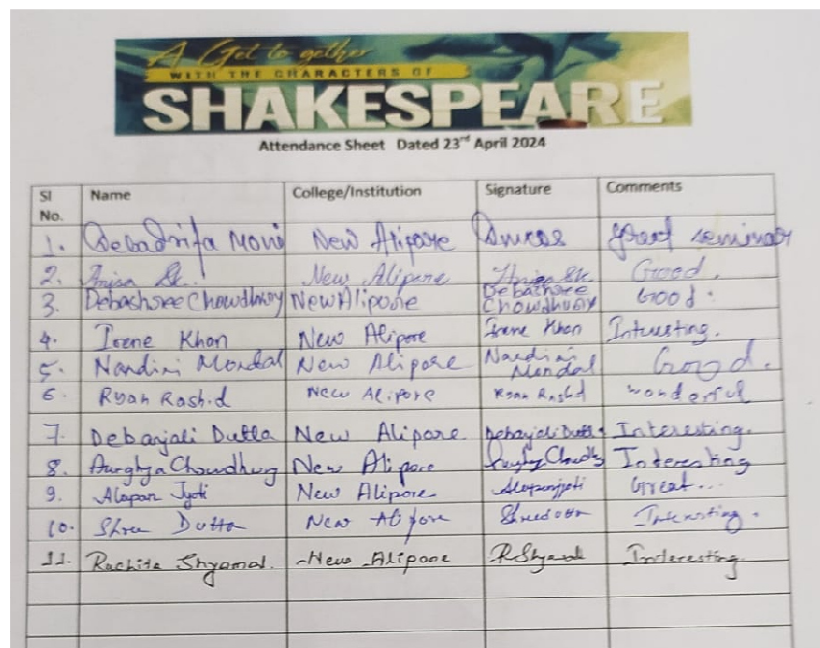 A Get to gether
WITH THE CHARACTERS OF
SHAKESPEARE
Attendance Sheet Dated 23rd April 2024
Sl No. Name College/Institution Signature Comments
1. Debadrita Moni New Alipore good seminar
2. Anjan Sk. New Alipore Anjan Sk. Good.
3. Debashree Chowdhury New Alipore Debashree Chowdhury Good.
4. Irene Khan New Alipore Irene Khan Interesting.
5. Nandini Mondal New Alipore Nandini Mondal Good.
6 Ryan Rashid New Alipore Ryan Rashid wonderful
7. Debanjali Dutta New Alipore Debanjali Dutta Interesting.
8. Aurghya Chowdhury New Alipore Interesting
9. Alapan Jyoti New Alipore Alapanjyoti Great...
10. Shree Dutta New Alipore Shreedutta Interesting.
11. Rachita Shyamal. New Alipore RShyamal Interesting.